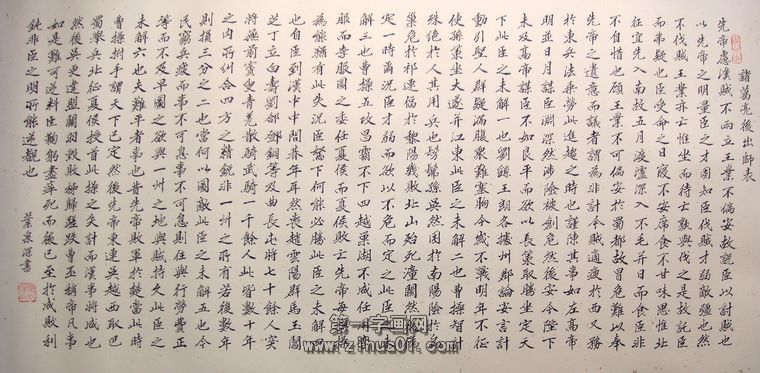 諸葛亮後出師表
先帝慮漢賊不兩立王業不偏安故託臣以討賊也
以先帝之明量臣之才固知臣伐賊才弱敵強也然
不伐賊王業亦亡惟坐而待亡孰與伐之是故託臣
而弗疑也臣受命之日寢不安席食不甘味思惟北
征宜先入南故五月渡瀘深入不毛并日而食臣非
不自惜也顧王業不可偏安於蜀都故冒危難以奉
先帝之遺意而議者謂為非計今賊適疲於西又務
於東兵法乘勞此進趨之時也謹陳其事如左高帝
明並日月謀臣淵深然涉險被創危然後安今陛下
未及高帝謀臣不如良平而欲以長策取勝坐定天
下此臣之未解一也劉繇王朗各據州郡論安言計
動引聖人群疑滿腹眾難塞胸今歲不戰明年不征
使孫策坐大遂并江東此臣之未解二也曹操智計
殊絕於人其用兵也髣髴孫吳然困於南陽險於烏
巢危於祁連偪於黎陽幾敗北山殆死潼關然後偽
定一時爾況臣才弱而欲以不危而定之此臣之未
解三也曹操五攻昌霸不下四越巢湖不成任用李
服而李服圖之委任夏侯而夏侯敗亡先帝每稱操
為能猶有此失況臣駑下何能必勝此臣之未解四
也自臣到漢中中間朞年耳然喪趙雲陽群馬玉閻
芝丁立白壽劉郃鄧銅等及曲長屯將七十餘人突
將無前賨叟青羌散騎武騎一千餘人此皆數十年
之內所糾合四方之精銳非一州之所有若復數年
則損三分之二也當何以圖敵此臣之未解五也今
民窮兵疲而事不可息事不可息則住與行勞費正
等而不及早圖之欲以一州之地與賊持久此臣之
未解六也夫難平者事也昔先帝敗軍於楚當此時
曹操拊手謂天下已定然後先帝東連吳越西取巴
蜀舉兵北征夏侯授首此操之失計而漢事將成也
然後吳更違盟關羽毀敗秭歸蹉跌曹丕稱帝凡事
如是難可逆料臣鞠躬盡瘁死而後已至於成敗利
鈍非臣之明所能逆覩也
葉泉深書
第一字画网
www.zihua01.com